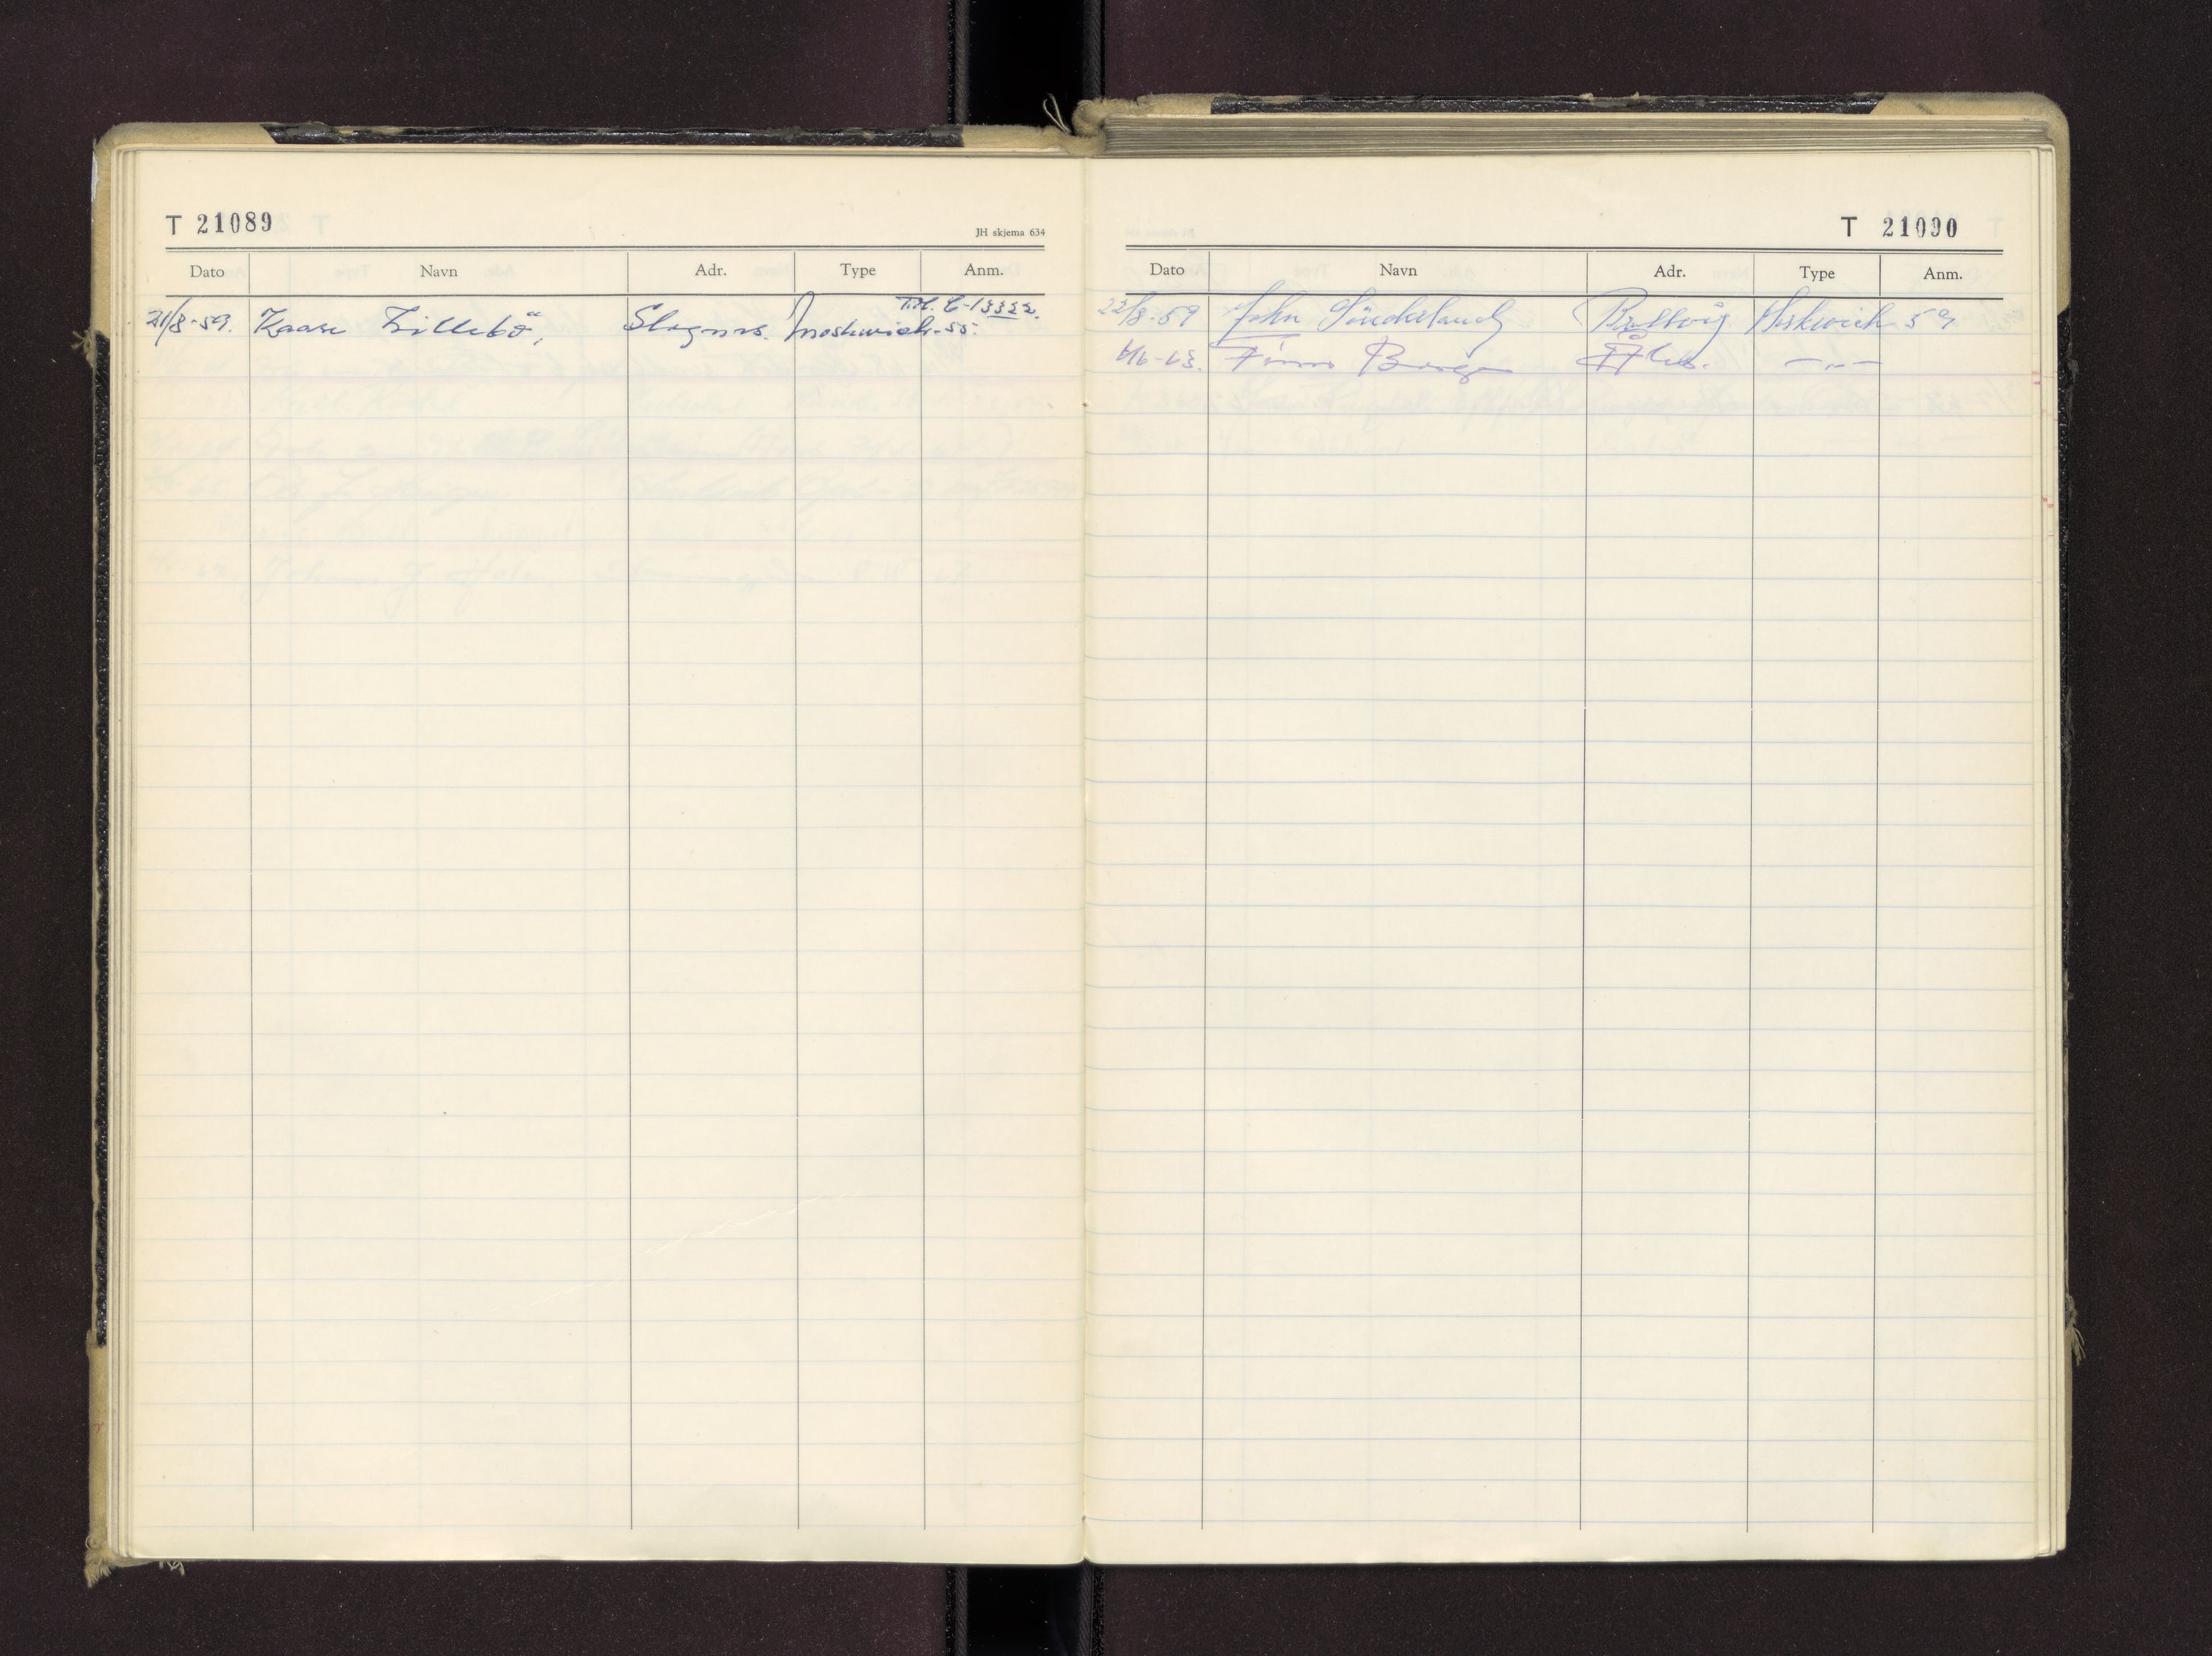 T 21089
JH skjema 634
Dato Navn Adr. Type Anm.
Til. C-13322.
21/8-59. Kaare Lillebö, Slagnes. Moskwich-55.
T 21090
Dato Navn Adr. Type Anm.
22/8-59 John Sönderland Moskwich 59
-63. Finn Berge Åles. —"—